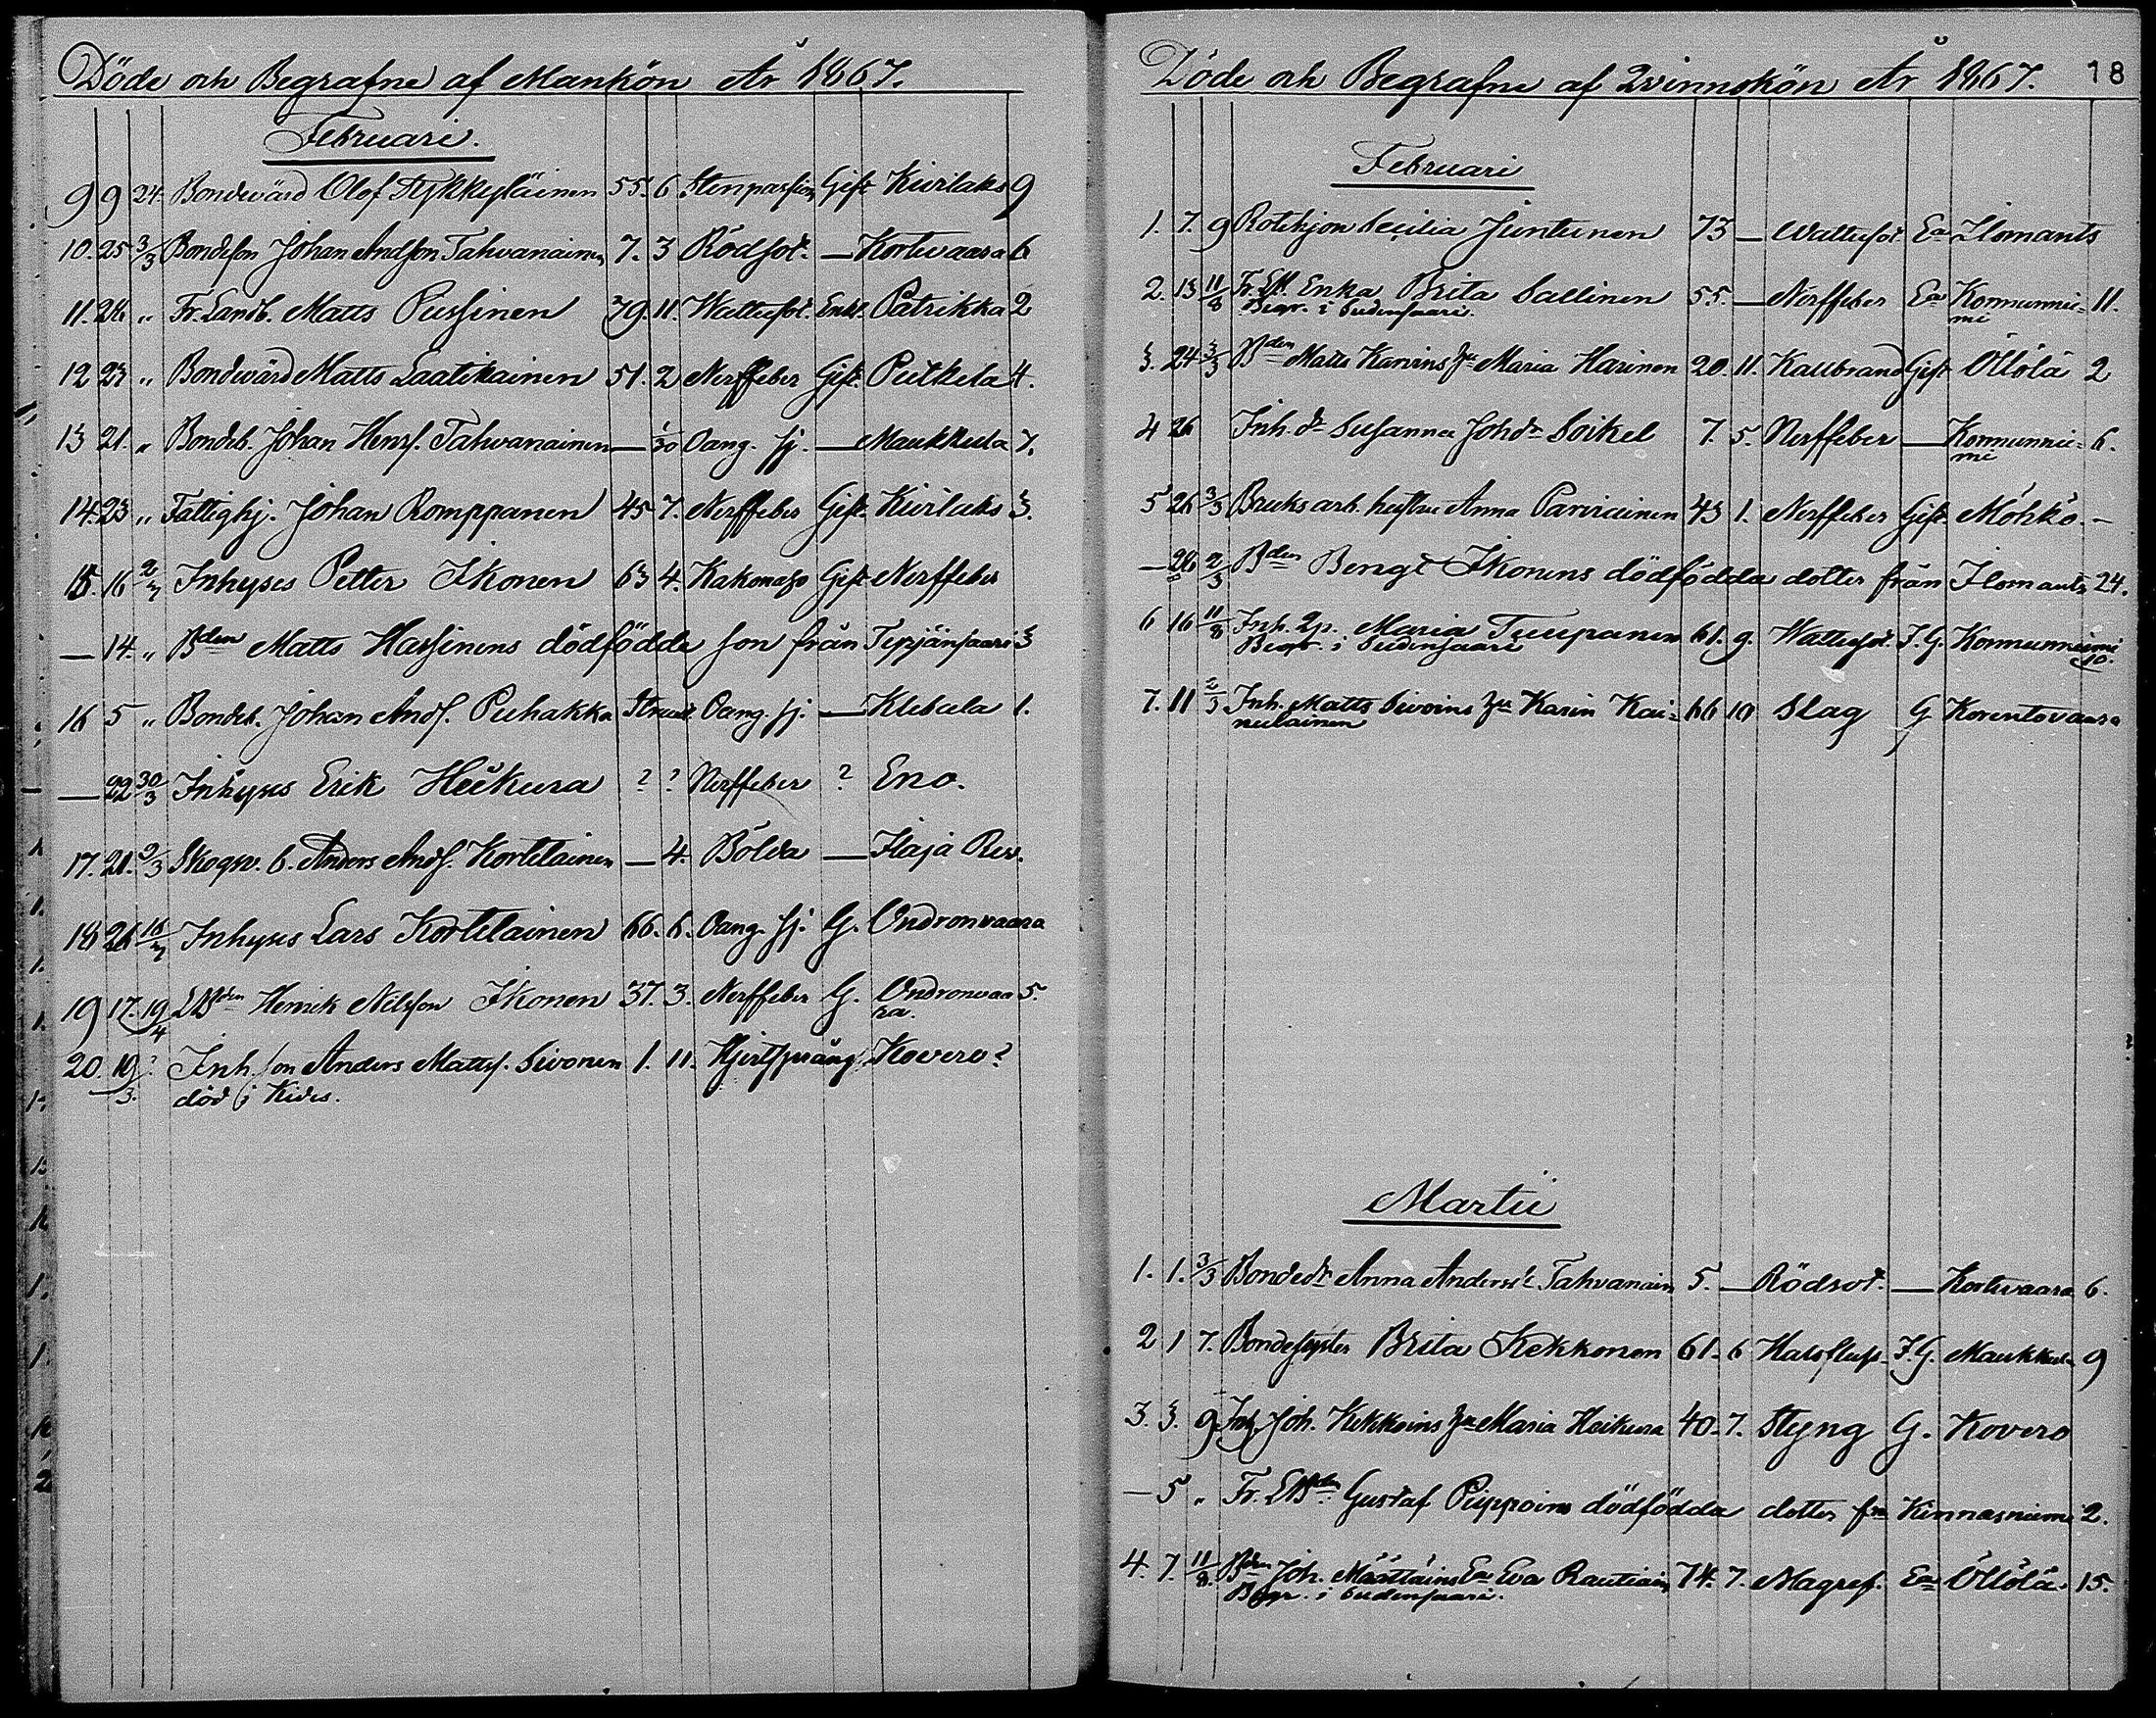 Döde och Begrafne af Mankön År 1867.
Februari.
9 9 24. Bondevärd Olof Tykkyläinen 55. 6 Stenpassion Gift Kivilaks 9
10. 25 3/3 Bondeson Johan Andsson Tahvanainen 7. 3 Rödsot. — Kortevaara 6
11. 24 " Fr. Landb. Matts Pussinen 79. 11. Wattusot. Enkl. Patrikka 2
12 23 " Bondevärd Matts Laatikainen 51. 2 Nerffeber Gift. Putkela 4.
13 21. " Bondeb. Johan Henrs. Tahvanainen — 1/30 Oang. sj. — Maukkula 7.
14. 23 " Fattighj. Johan Romppanen 45 7. Nerffeber Gift. Kivilaks 3.
15. 16 2/3 Inhyses Petter Ikonen 63 4. Kakonaho Gift Nerffeber
— 14. " Bden Matts Hassinens dödfödde son från Tepjänsaari 3
16 5 " Bondeb. Johan Ands. Puhakka Strax Oang. sj. — Klebula 1.
— 22 30/3 Inhyses Erik Heikura ? ? Nerffeber ? Eno.
17. 21. 2/3 Skogsv. b. Anders Ands. Kortelainen — 4. Bölda — Ilaja Rev.
18 26 16/3 Inhyses Lars Kortelainen 66. 6. Oang. sj. G. Ondronvaara
19 17. 19/4 LBden Henrik Nilsson Ikonen 37. 3. Nerffeber G. Ondronvaa 5.
ra.
20. 19/3. ? Inh. son Anders Matts. Sivonen 1. 11. Hjertsprång Kovero ?
död i Kides.
Döde och Begrafne af Qvinnokön År 1867. 18
Februari
1. 7. 9 Rotehjon Cecilia Juntunen 73 — Wattusot Ea Ilomants
2. 13 11/8 Fr. Enka Brita Sallinen 55. — Nerffeber Ea Konnunnie= 11.
Begr. i Sudensaari. mi
3. 24 3/3 Bden Matts Kanins hu Maria Harinen 20. 11. Kallbrand Gift Öllölä 2
4 26 Inh. dr Susanna Johdr Soikel 7. 5. Nerffeber — Konnunnie= 6.
mi
5 26 3/3 Bruksarb. hustru Anna Parviainen 43 1. Nerffeber Gift. Möhkö. —
— 24 2/3 Bden Bengt Ikonens dödfödda dotter från Ilomants 24.
6 16 11/8 Inh. Qp. Maria Tuupanen 61. 9. Wattusot. I. G. Konnunniemi
Begr. i Sudensaari 10.
7. 11 3/3 Inh. Matts Sivoins hu Karin Kai= 66 10 Slag G Korentovaara
nulainen
Martii
1. 1. 3/3 Bondedr Anna Andersdr Tahvanain 5. — Rödsot. — Kortevaara 6.
2 1 7. Bondesyster Brita Kekkonen 61. 6 Halsfluss. I. G. Maukkula 9
3. 3. 9 Inh. Joh. Kekkoins hu Maria Heikura 40. 7. Styng G. Kovero
— 5 " Fr. LBden Gustaf Piippoins dödfödda dotter frn Kinnasniemi 2.
4. 7. 11/8. Bden Joh. Määttäins Ea Eva Rautiain 74. 7. Magref. Ea Öllölä 15.
Begr. i Sudensaari.